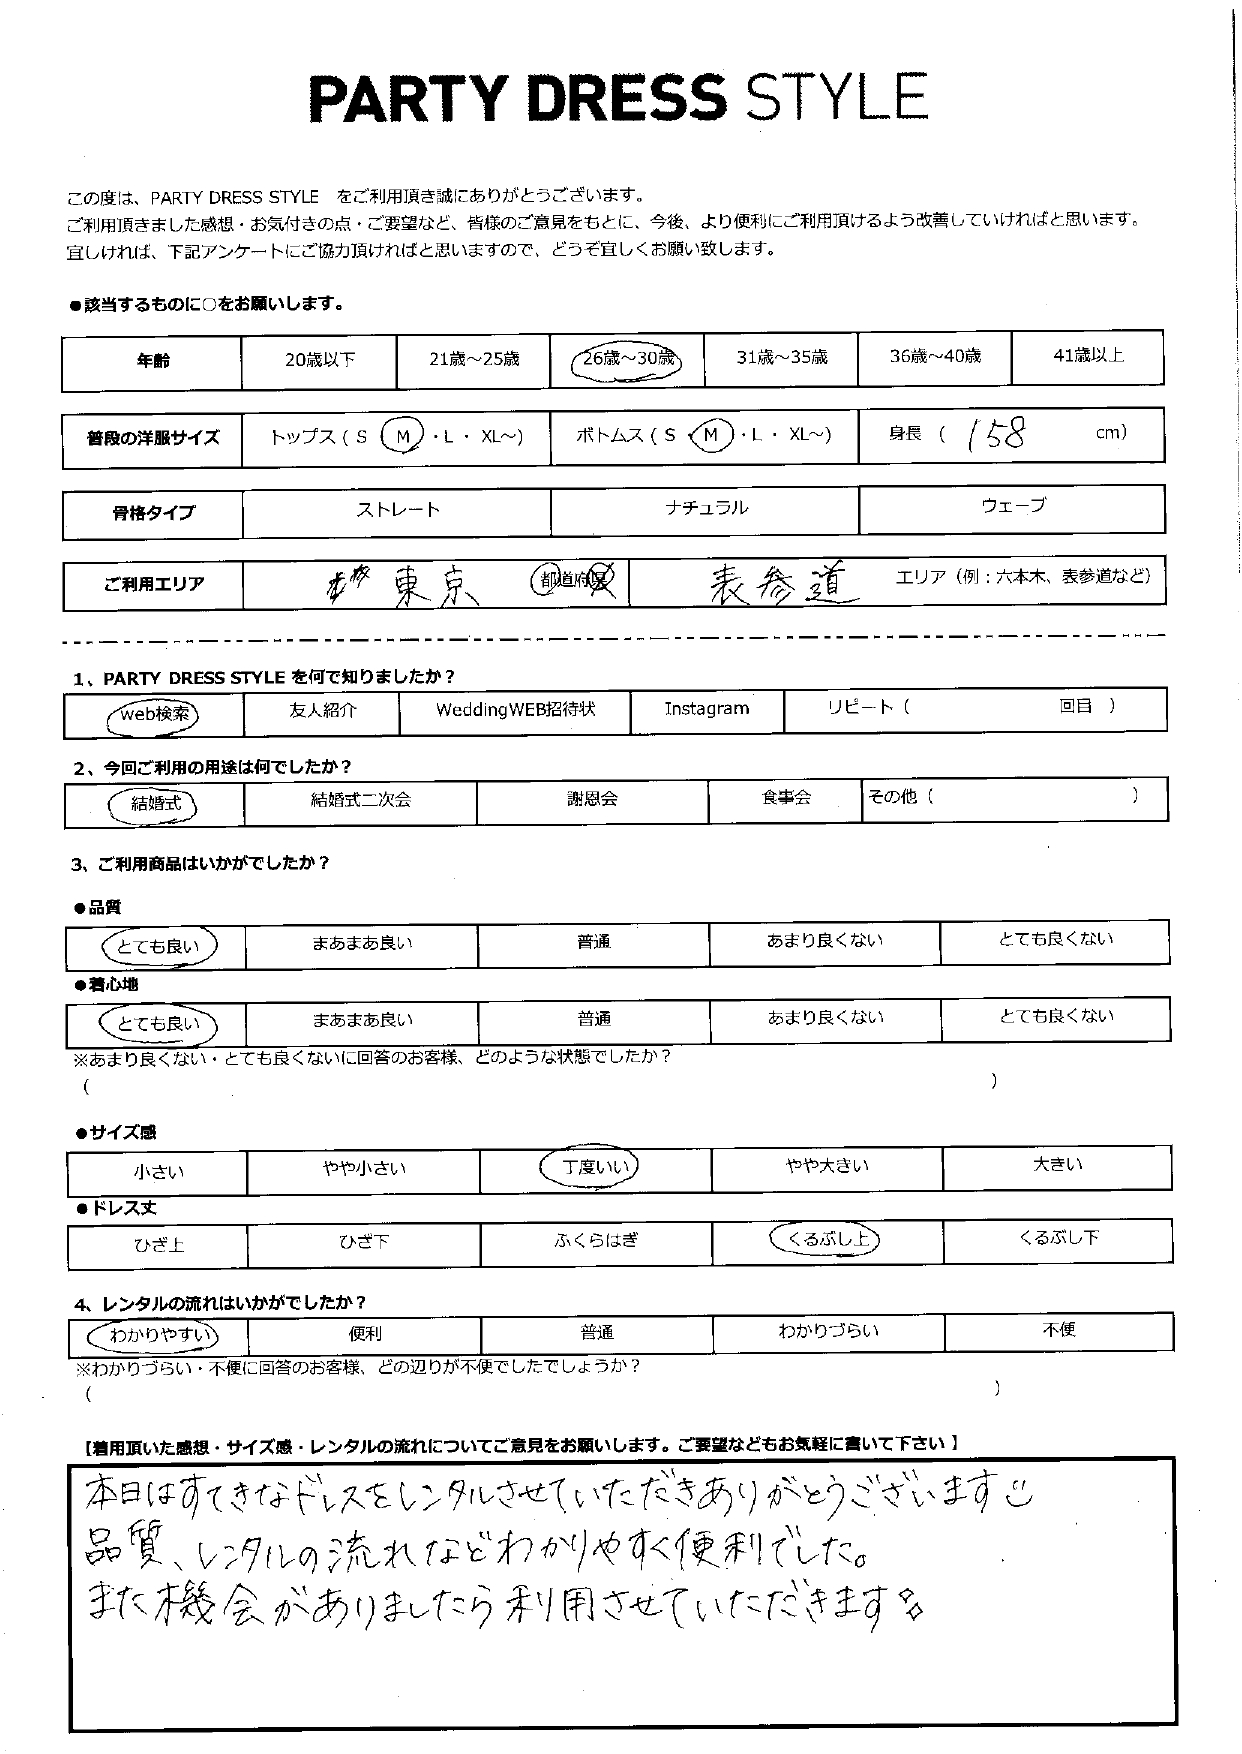 PARTY DRESS STYLE
この度は、PARTY DRESS STYLE をご利用頂き誠にありがとうございます。
ご利用頂きました感想・お気付きの点・ご要望など、皆様のご意見をもとに、今後、より便利にご利用頂けるよう改善していければと思います。
宜しければ、下記アンケートにご協力頂ければと思いますので、どうぞ宜しくお願い致します。
●該当するものに○をお願いします。
年齢 20歳以下 21歳～25歳 26歳～30歳 31歳～35歳 36歳～40歳 41歳以上
普段の洋服サイズ トップス（ S ・ M ・ L ・ XL～） ボトムス（ S ・ M ・ L ・ XL～） 身長 （ 158 cm）
骨格タイプ ストレート ナチュラル ウェーブ
ご利用エリア 東京 都道府県 表参道 エリア（例：六本木、表参道など）
1、PARTY DRESS STYLE を何で知りましたか？
web検索 友人紹介 WeddingWEB招待状 Instagram リピート（ 回目 ）
2、今回ご利用の用途は何でしたか？
結婚式 結婚式二次会 謝恩会 食事会 その他（ ）
3、ご利用商品はいかがでしたか？
●品質
とても良い まあまあ良い 普通 あまり良くない とても良くない
●着心地
とても良い まあまあ良い 普通 あまり良くない とても良くない
※あまり良くない・とても良くないに回答のお客様、どのような状態でしたか？
（ ）
●サイズ感
小さい やや小さい 丁度いい やや大きい 大きい
●ドレス丈
ひざ上 ひざ下 ふくらはぎ くるぶし上 くるぶし下
4、レンタルの流れはいかがでしたか？
わかりやすい 便利 普通 わかりづらい 不便
※わかりづらい・不便に回答のお客様、どの辺りが不便でしたでしょうか？
（ ）
【着用頂いた感想・サイズ感・レンタルの流れについてご意見をお願いします。ご要望などもお気軽に書いて下さい】
本日はすてきなドレスをレンタルさせていただきありがとうございます
品質、レンタルの流れなどわかりやすく便利でした。
また機会がありましたら利用させていただきます